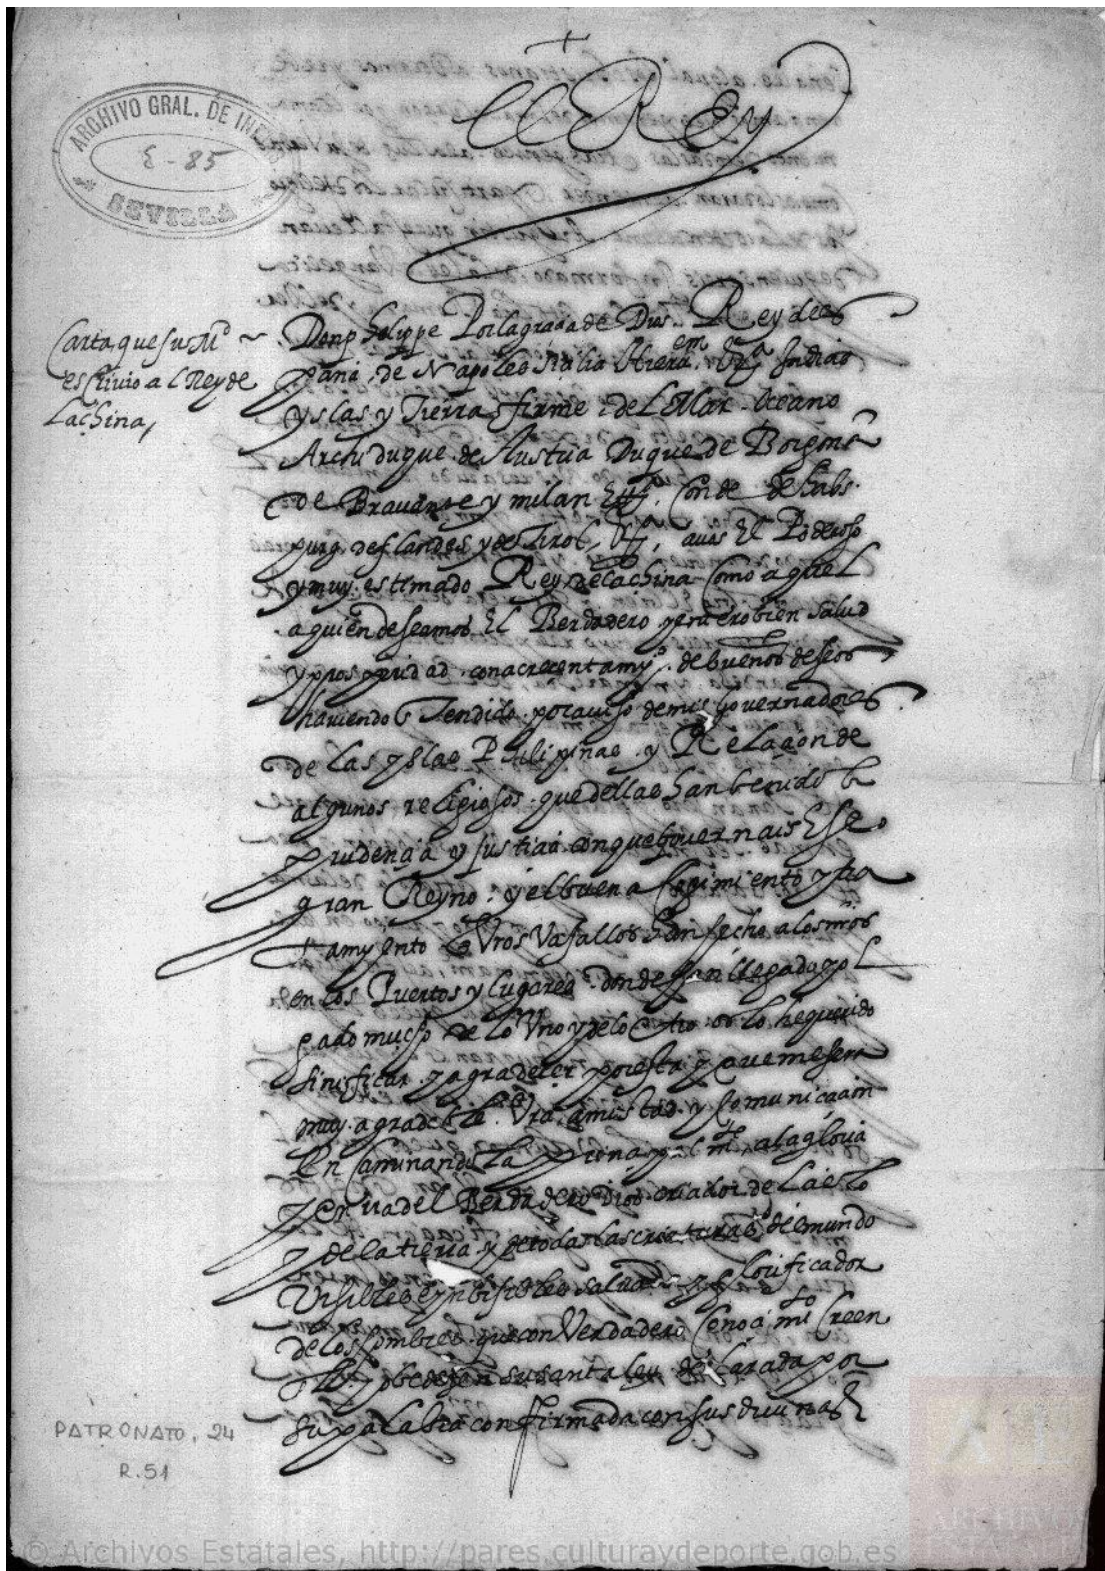 ARCHIVO GRAL. DE IN
E - 85
SEVILLA
+
El Rey
Carta que su Md
escrivio al Rey de
La china,
Don phelippe Por la graçia de Dios Rey de es
pana, de Napoles Siçilia Hierusalem Indias
yslas y Tierra firme del Mar Oceano
Archiduque de Austria Duque de Borgoña
de Bravante y milan Conde de habs
purg de flandes y de Tirol, a vos El Poderoso
y muy estimado Rey de La china Como aquel
a quien deseamos El Berdadero y entero bien salud
y prosperidad con acrecentamyº de buenos deseos
haviendo entendido por aviso de mis governadores
de las yslas Philipinas y Relaçion de
algunos religiosos que dellas han benido la
prudençia y justiçia con que governais Ese
gran Reyno y el buen acogimiento y tra
tamyento q Vros Vasallos han fecho a los mios
en los Puertos y lugares donde han llegado y hol
gado mucho de lo Uno y de lo Otro os lo he querido
sinificar y agradeçer por esta y que me sera
muy agradable Vra amistad y Comunicaçion
EnCaminandola prinçipalmte a la gloria
y onrra del Berdadero Dios criador del çielo
y de la tierra y de todas las criaturas del mundo
Visibles e ynbisibles salvador y glorificador
de los hombres que con Verdadero Conoçimto Creen
y obedeçen su santa ley declarada por
su palabra confirmada con sus divinas
PATRONATO, 24
R. 51
© Archivos Estatales, http://pares.culturaydeporte.gob.es